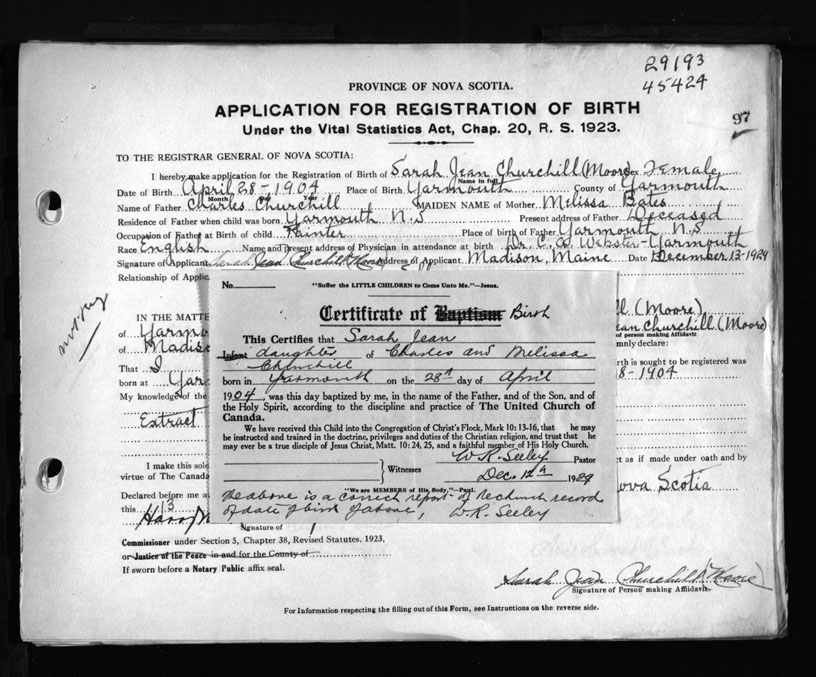 29193
45424
97
PROVINCE OF NOVA SCOTIA.
APPLICATION FOR REGISTRATION OF BIRTH
Under the Vital Statistics Act, Chap. 20, R. S. 1923.
TO THE REGISTRAR GENERAL OF NOVA SCOTIA:
I hereby make application for the Registration of Birth of Sarah Jean Churchill (Moore) Sex Female
Name in full
Date of Birth April 28-1904 Place of Birth Yarmouth County of Yarmouth
Month Year
Name of Father Charles Churchill MAIDEN NAME of Mother Melissa Bates
Residence of Father when child was born Yarmouth N.S Present address of Father Deceased
Occupation of Father at Birth of child Painter Place of birth of Father Yarmouth N.S
Race English Name and present address of Physician in attendance at birth Dr. C. A. Webster-Yarmouth
Signature of Applicant Sarah Jean Churchill Moore Address of Applicant Madison, Maine Date December 13-1929
Relationship of Applic
No.
"Suffer the LITTLE CHILDREN to Come Unto Me."-Jesus.
Certificate of Baptism Birth
This Certifies that Sarah Jean
Infant daughter of Charles and Melissa
Churchill
born in Yarmouth on the 28th day of April
1904, was this day baptized by me, in the name of the Father, and of the Son, and of
the Holy Spirit, according to the discipline and practice of The United Church of
Canada.
We have received this Child into the Congregation of Christ's Flock, Mark 10: 13-16, that he may
be instructed and trained in the doctrine, privileges and duties of the Christian religion, and trust that he
may ever be a true disciple of Jesus Christ, Matt. 10: 24, 25, and a faithful member of His Holy Church.
W. R. Seeley Pastor
Witnesses
Dec. 12th 1929
"We are MEMBERS of His Body."-Paul.
The above is a correct report of the church record
of date of birth of above, W. R. Seeley
IN THE MATTE
of Yarmo
of Madiso
That I
born at Yar
My knowledge of the
Extract
I make this sole
virtue of The Canada
Declared before me a
this 13
ll (Moore)
ean Churchill (Moore)
of person making Affidavit
mnly declare:
irth is sought to be registered was
8-1904
ct as if made under oath and by
ova Scotia
Signature of
Commissioner under Section 5, Chapter 38, Revised Statutes, 1923,
or Justice of the Peace in and for the County of
If sworn before a Notary Public affix seal.
Sarah Jean Churchill Moore
Signature of Person making Affidavit.
For Information respecting the filling out of this Form, see Instructions on the reverse side.